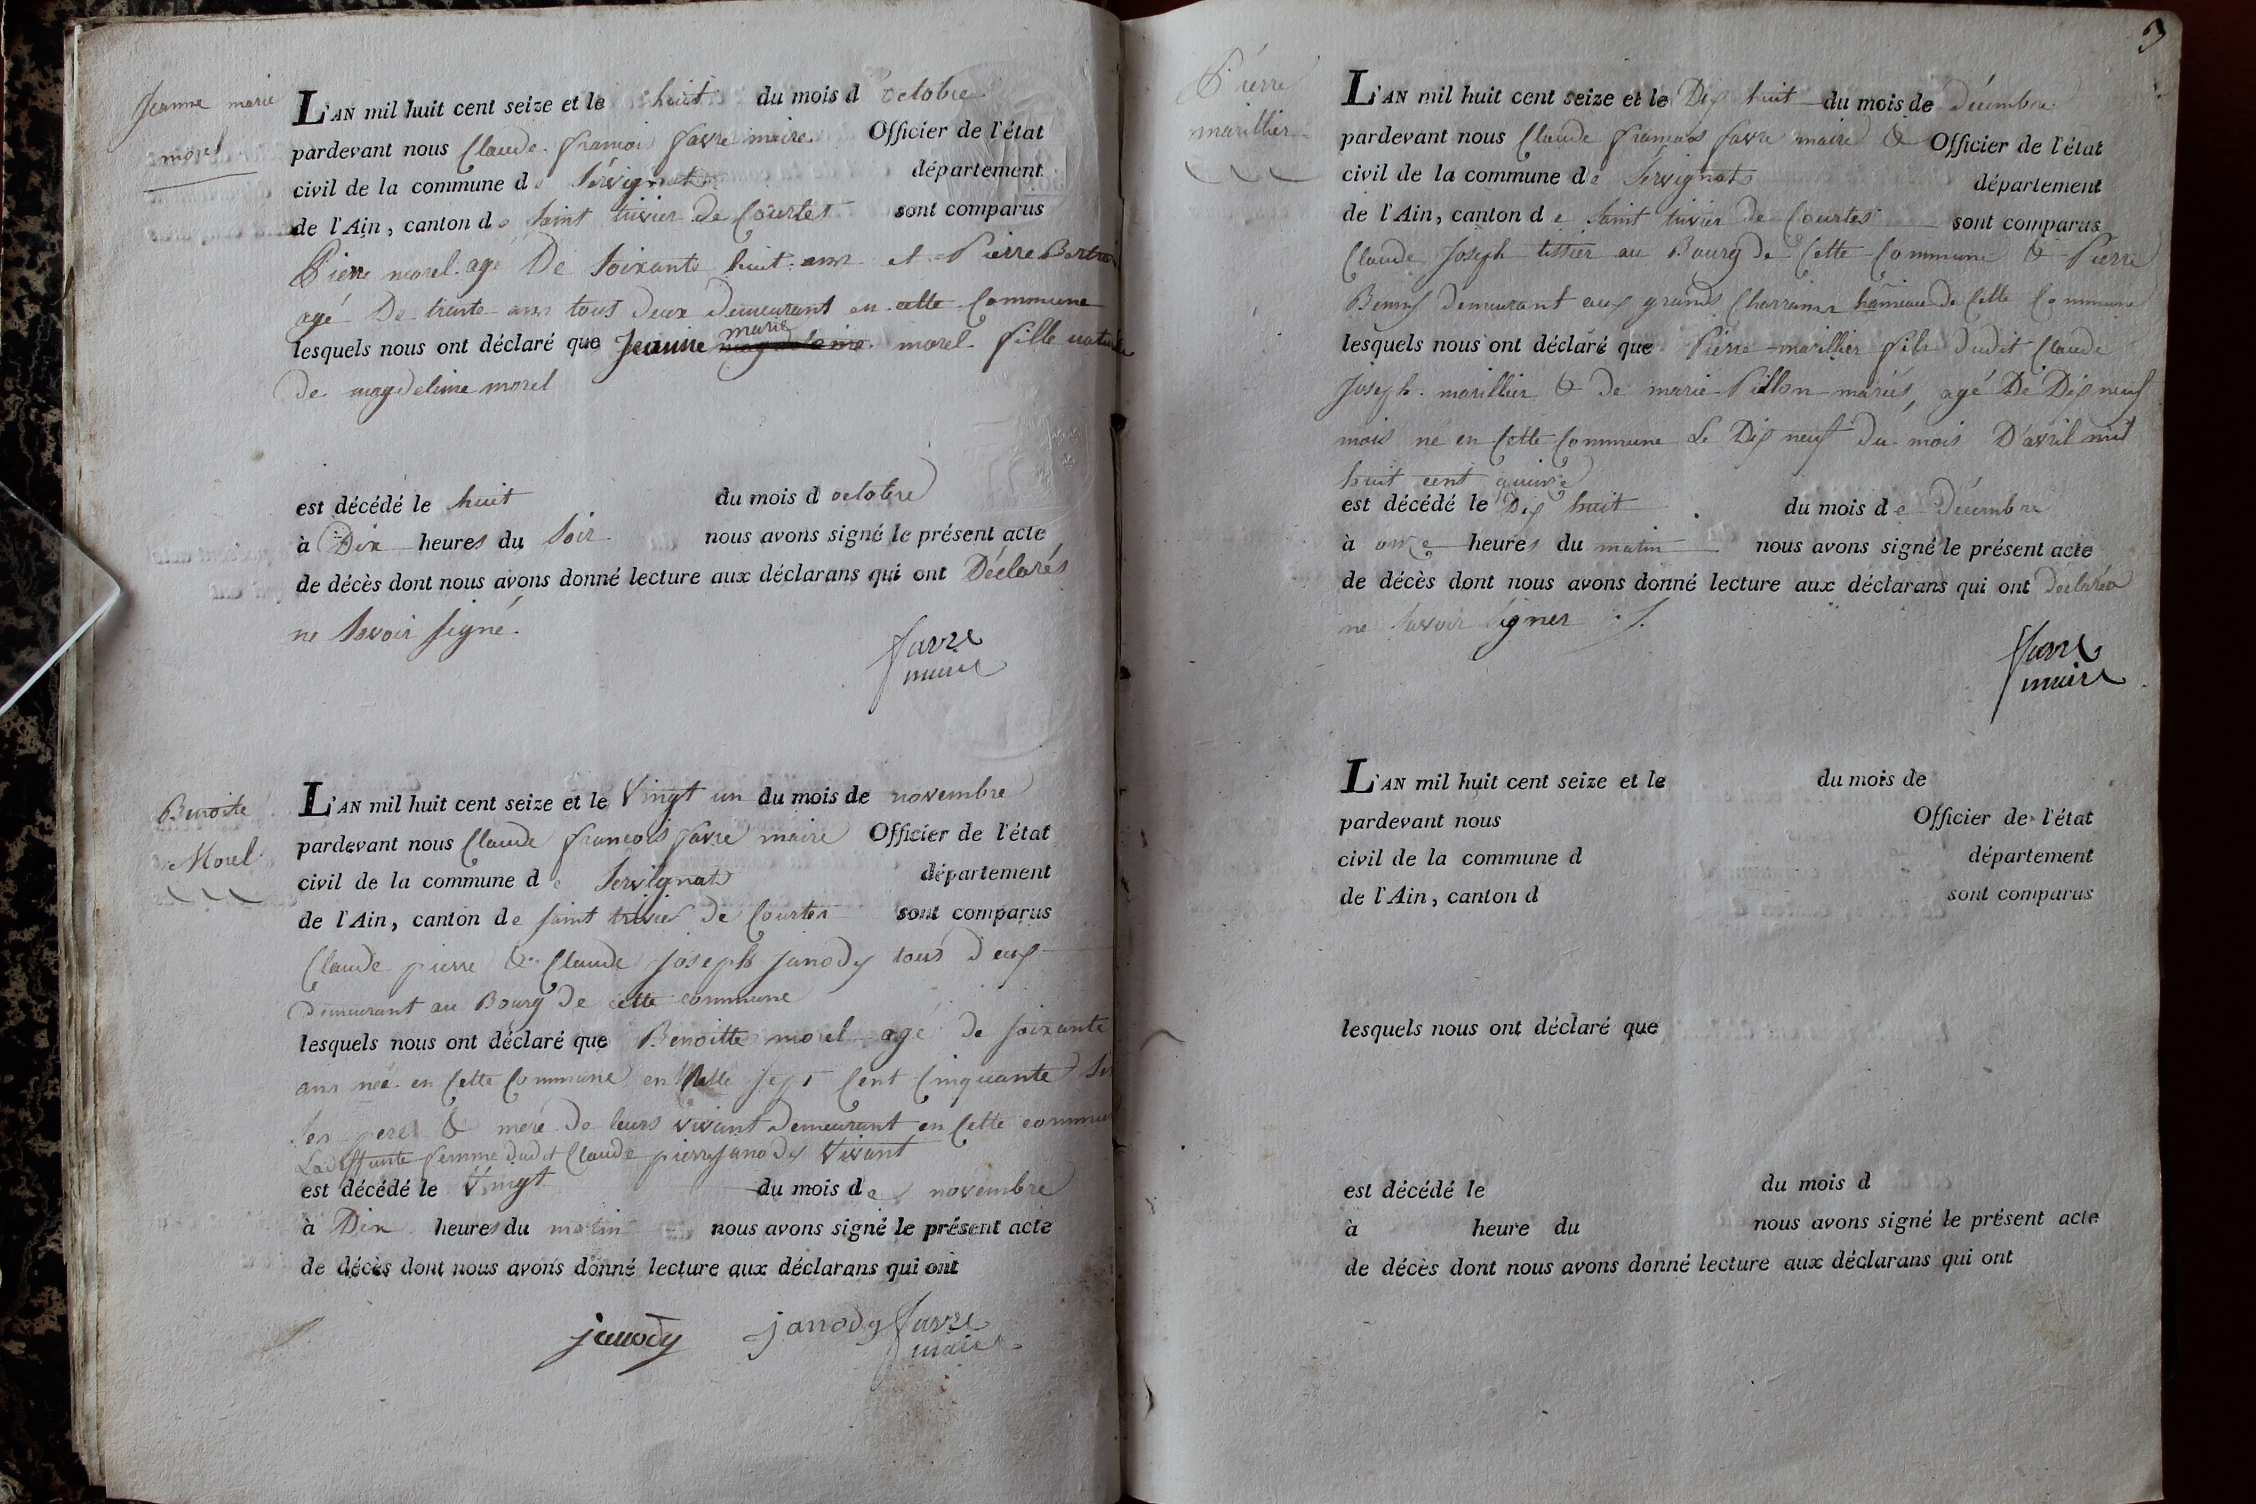 Jeanne marie
morel
L'AN mil huit cent seize et le huit du mois d'octobre
pardevant nous Claude françois favre maire Officier de l'état
civil de la commune de Servignat département
de l'Ain, canton de Saint trivier De Courtes sont comparus
Pierre morel agé De Soixante huit ans et Pierre
agé De trente ans tous deux demeurant en cette Commune
marie
lesquels nous ont déclaré que Jeanne magdelaine morel fille naturelle
de magdeleine morel
est décédé le huit du mois d octobre
à Dix heures du Soir nous avons signé le présent acte
de décès dont nous avons donné lecture aux déclarans qui ont Déclarés
ne Savoir signé.
favre
maire
Benoite
Morel
L'AN mil huit cent seize et le Vingt un du mois de novembre
pardevant nous Claude françois favre maire Officier de l'état
civil de la commune de Servignat département
de l'Ain, canton de saint trivier de Courtes sont comparus
Claude pierre & Claude joseph janody tous deux
demeurant au Bourg de cette commune
lesquels nous ont déclaré que Benoitte morel agé de soixante
ans née en Cette Commune en Mille sept Cent Cinquante six
Ses peres & mere de leurs vivant demeurant en Cette commune
Laditte femme dudit Claude pierre janody Vivant
est décédé le Vingt du mois de novembre
à Dix heures du matin nous avons signé le présent acte
de décès dont nous avons donné lecture aux déclarans qui ont
janody janody favre
maire
Pierre
marillier
L'AN mil huit cent seize et le Dix huit du mois de décembre
pardevant nous Claude françois favre maire & Officier de l'état
civil de la commune de Servignat département
de l'Ain, canton de Saint trivier de Courtes sont comparus
Claude Joseph au Bourg de Cette Commune & Pierre
demeurant aux grands hameau de Cette Commune
lesquels nous ont déclaré que Pierre marillier fils dudit Claude
Joseph marillier & de marie Pillon mariés, agé De Dix neuf
mois né en Cette Commune Le Dix neuf du mois D'avril mil
huit cent quinze
est décédé le Dix huit du mois de Décembre
à onze heures du matin nous avons signé le présent acte
de décès dont nous avons donné lecture aux déclarans qui ont déclarés
ne savoir signer
favre
maire
L'AN mil huit cent seize et le du mois de
pardevant nous Officier de l'état
civil de la commune d département
de l'Ain, canton d sont comparus
lesquels nous ont déclaré que
est décédé le du mois d
à heure du nous avons signé le présent acte
de décès dont nous avons donné lecture aux déclarans qui ont